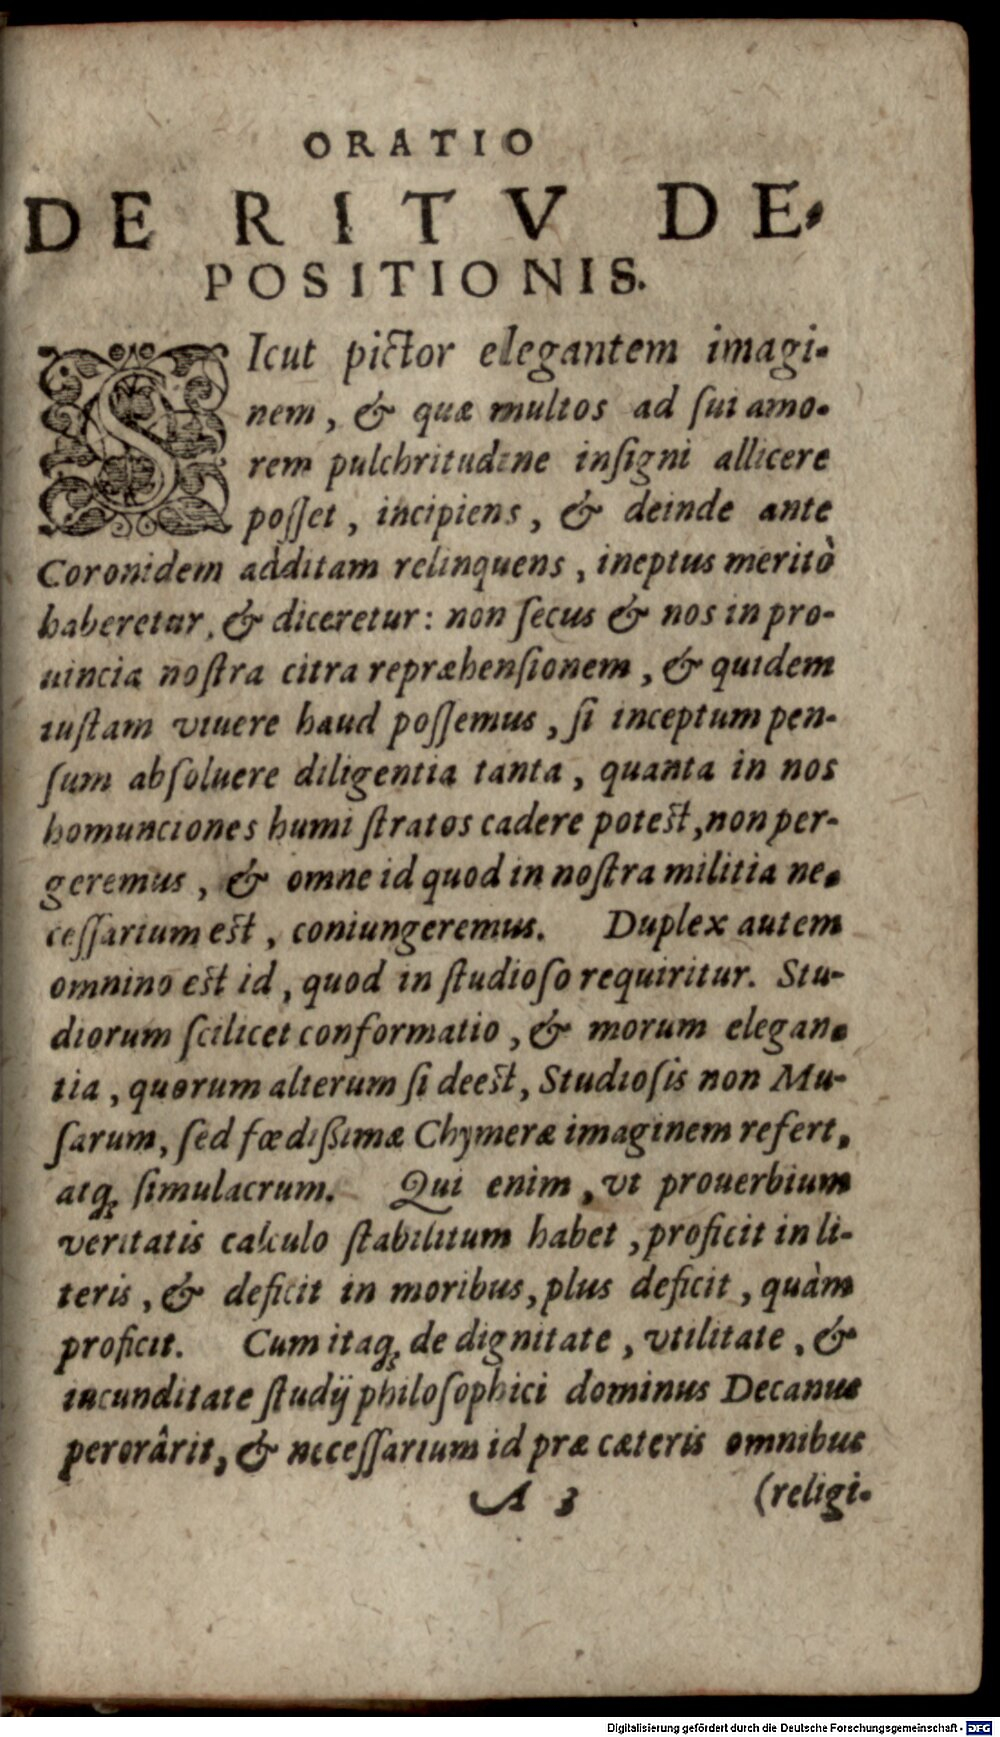 ORATIO
DE RITV DE-
POSITIONIS.
SIcut pictor elegantem imagi-
nem, & quæ multos ad ſui amo-
rem pulchritudine inſigni allicere
poſſet, incipiens, & deinde ante
Coronidem additam relinquens, ineptus meritò
haberetur, & diceretur: non ſecus & nos in pro-
uincia noſtra citra repræhenſionem, & quidem
iuſtam viuere haud poſſemus, ſi inceptum pen-
ſum abſoluere diligentia tanta, quanta in nos
homunciones humi ſtratos cadere poteſt, non per-
geremus, & omne id quod in noſtra militia ne-
ceſſarium eſt, coniungeremus. Duplex autem
omnino eſt id, quod in ſtudioſo requiritur. Stu-
diorum ſcilicet conformatio, & morum elegan-
tia, quorum alterum ſi deeſt, Studioſis non Mu-
ſarum, ſed fœdißimæ Chymeræ imaginem refert,
atq; ſimulacrum. Qui enim, vt prouerbium
veritatis calculo ſtabilitum habet, proficit in li-
teris, & deficit in moribus, plus deficit, quàm
proficit. Cum itaq; de dignitate, vtilitate, &
iucunditate ſtudij philoſophici dominus Decanus
perorârit, & neceſſarium id præ cæteris omnibus
A 3 (religi-
Digitalisierung gefördert durch die Deutsche Forschungsgemeinschaft - DFG